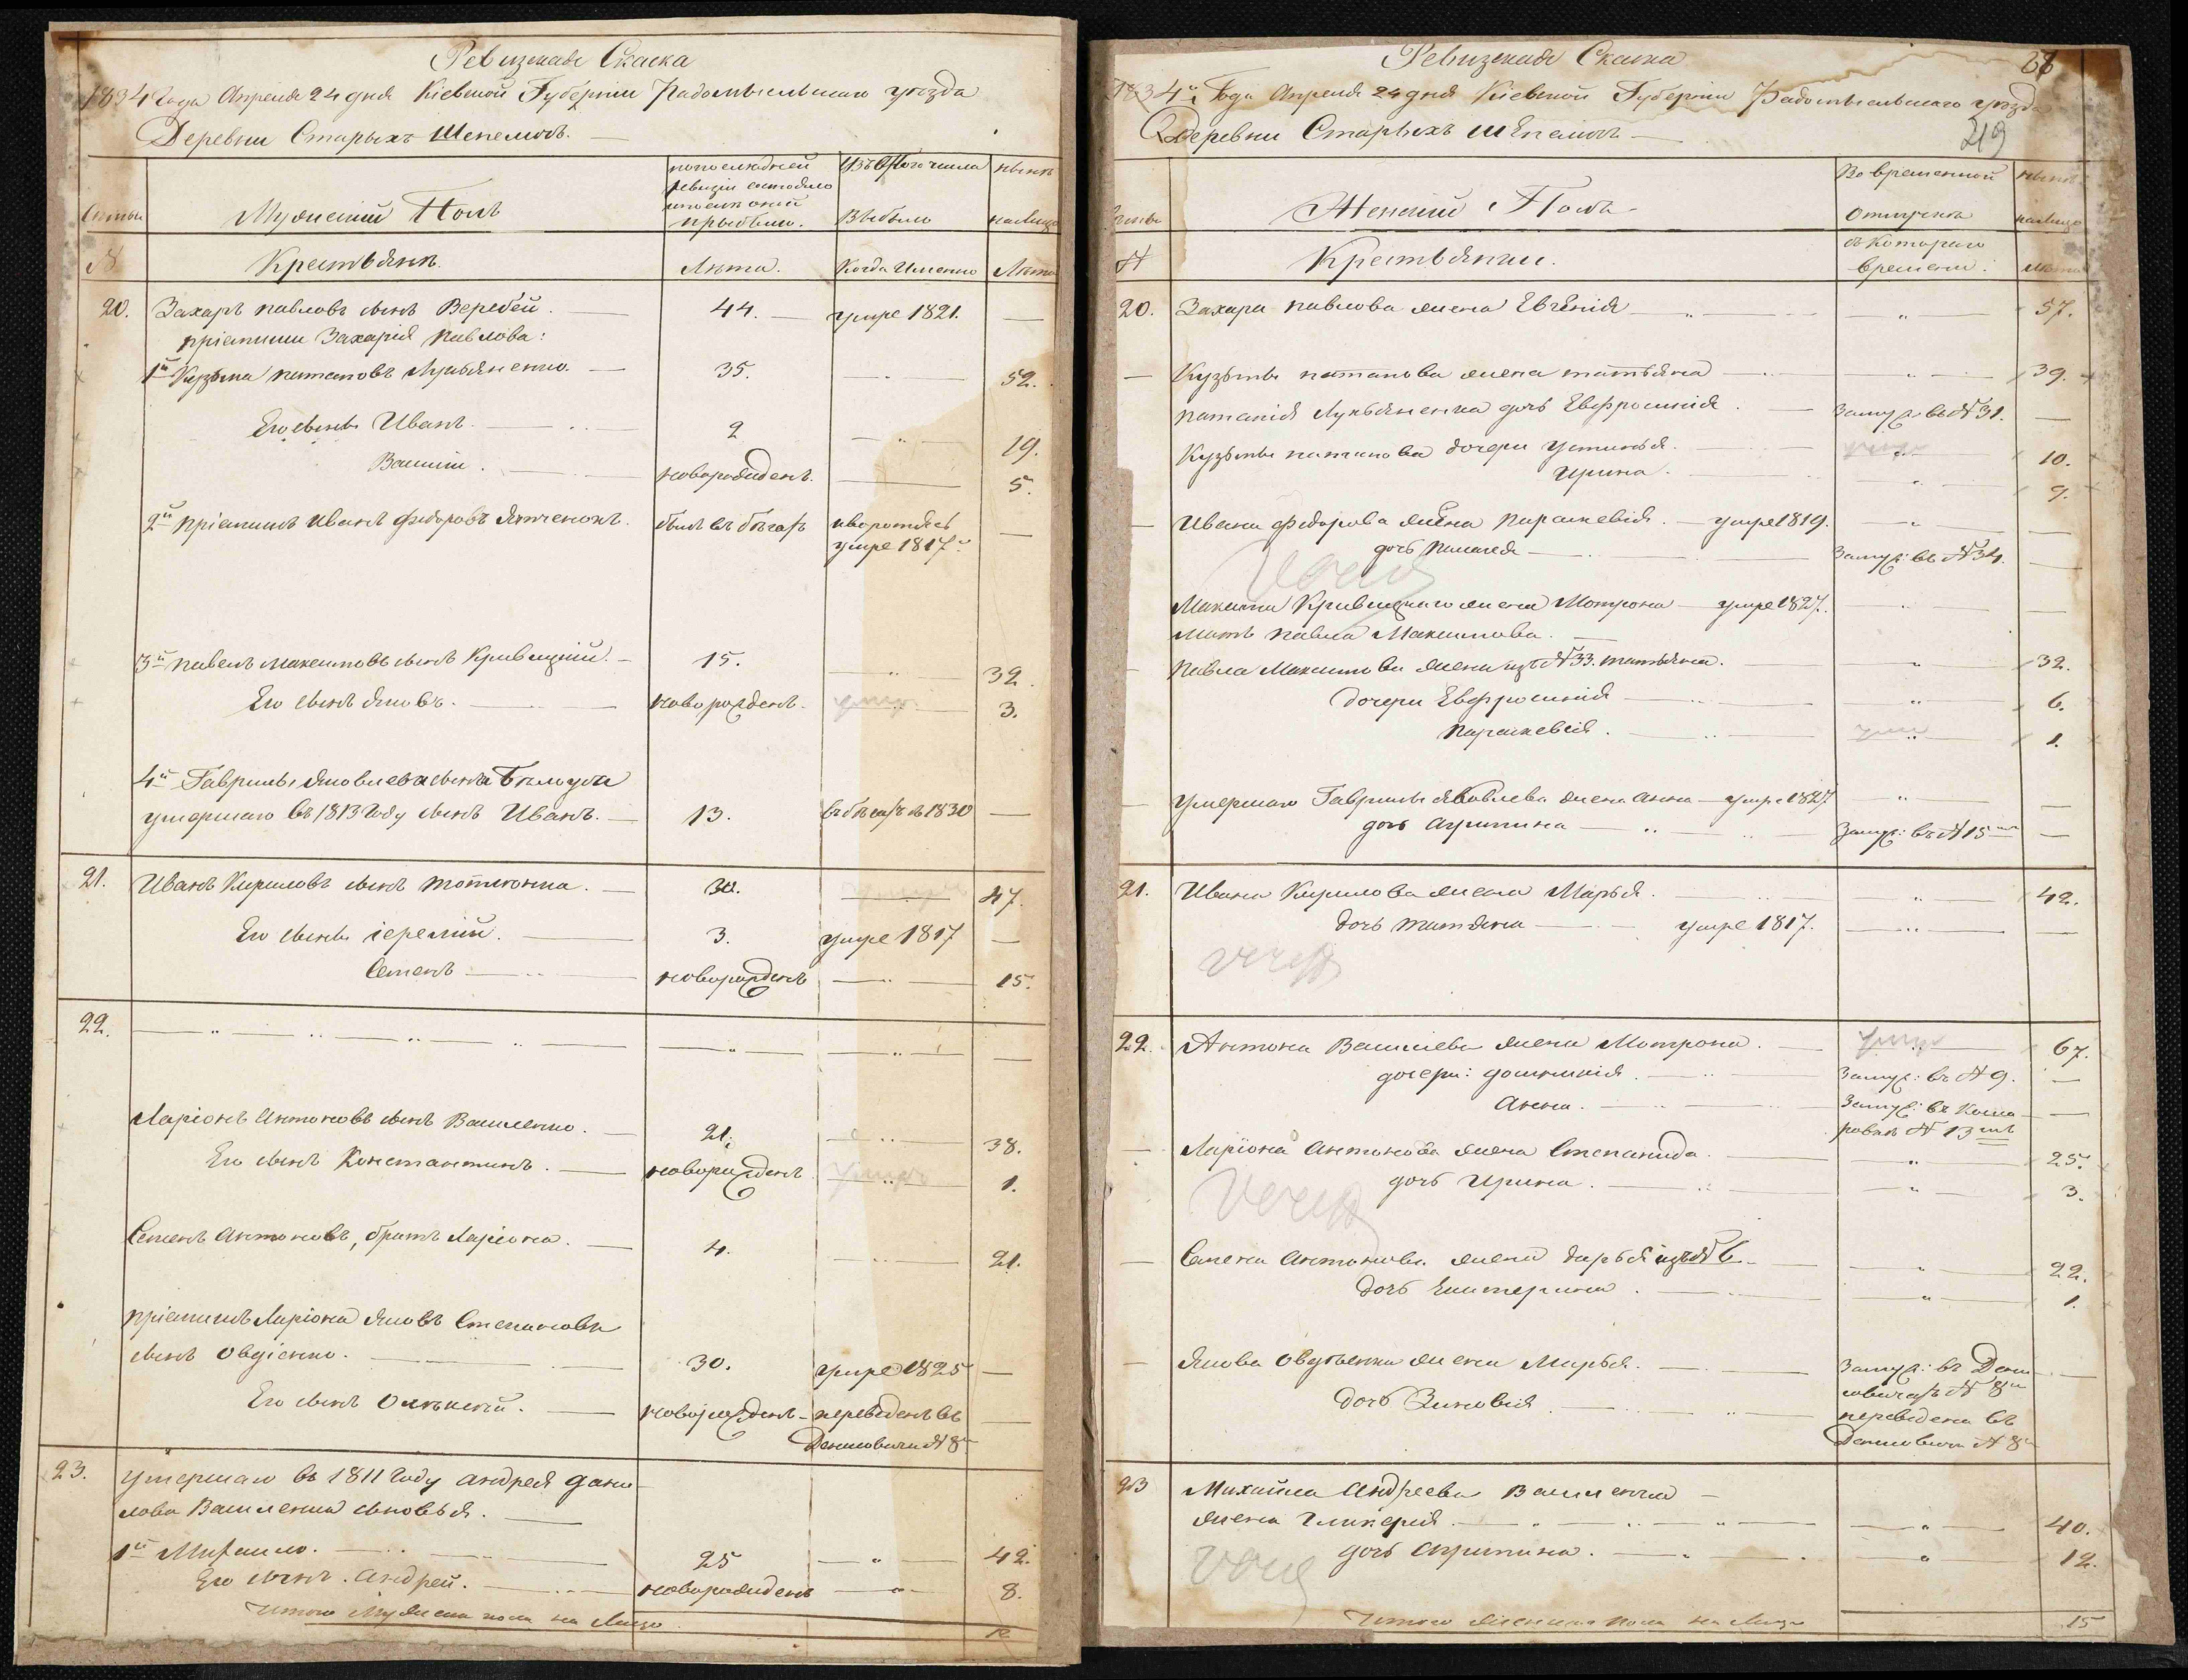 Ревизская Скаска
1834 Года Апреля 24 дня Кіевской Губерніи Радомысльскаго уезда
Деревни Старыхъ Шепеличь.
Мужескій Полъ
по последней ревизіи состояло и после оной прыбыло.
Изъ того числа Выбыло
ныне на лицо
№
Крестьяне.
Лета.
Когда Именно
Лета
20. Захаръ павловъ сынъ Веребей. 44. умре 1821. —
пріемыши Захарія павлова:
1й Кузьма потаповъ Лукьяненко. 35. 52.
Его сынъ Иванъ. 2 19.
Василій. новорожденъ. 5.
2й пріемышъ Иванъ федоровъ былъ в бегахъ и воротясь
умре 1817 —
3й павелъ максимовъ сынъ Кривицкій. 15. 32.
Его сынъ яковъ. новорожденъ. умре 3.
4й Гаврилы яковлева сына
умершаго въ 1813 Году сынъ Иванъ. 13. въ бегахъ съ 1830 —
21. Иванъ Кириловъ сынъ 30. умре 47.
Его сынъ іеремій. 3. умре 1817 —
Семенъ новорожденъ 15.
22.
Ларіонъ Антоновъ сынъ Василенко. 21. 38.
Его сынъ Константинъ. новорожденъ умре 1.
Семенъ Антоновъ, братъ Ларіона. 4. 21.
пріемышъ Ларіона яковъ Степановъ
сынъ Овдіенко. 30. умре 1825 —
Его сынъ Олексей. новорожденъ переведенъ въ
Денисовичи № 8
23. умершаго въ 1811 Году Андрея дани
лова Василенка сыновья.
1й Михайло. 25 42.
Его сынъ Андрей. новорожденъ 8.
Итого Мужеска пола на Лицо 12
Ревизская Скаска
28
1834 Года Апреля 24 дня Кіевской Губерніи Радомысльскаго уезда
219
Деревни Старыхъ шепеличь
Женскій Полъ
Во временной отлучке
ныне на лицо
№
Крестьянки.
съ Котораго времени.
лета
20. Захара павлова жена Евгенія 57.
Кузьмы потапова жена татьяна 39.
потапія Лукьяненка дочь Евфросинія. Замуж. въ № 31. —
Кузьмы потапова дочери устинья. умре 10.
Ирина. 9.
Ивана федорова жена параскевія. умре 1819. —
дочь пелагея Замуж: въ № 34. —
Максима Кривицкаго жена Мотрона умре 1827. —
мать павла Максимова.
павла Максимова жена изъ № 33. татьяна. 32.
дочери Евфросинія 6.
параскевія. умре 1.
умершаго Гаврилы яковлева жена анна умре 1827 —
дочь агрипина Замуж: въ № 15 —
21. Ивана Кирилова жена Марья. 42.
дочь татяна умре 1817. —
22. Антона Василіева жена Мотрона. умре 67.
дочери: домникія. Замуж: въ № 9. —
анна. Замуж: въ Коша
ровке № 13 —
Ларіона Антонова жена Степанида. 25.
дочь Ирина. 3.
Семена Антонова жена дарья изъ № 6 22.
дочь Екатерина. 1.
якова Овдіенка жена Марья. Замуж: въ Дени
совичахъ № 8 —
дочь Зиновія переведена въ
Денисовичи № 8
23 Михайла Андреева Василенка
жена Гликерія. 40.
дочь агрипина. 12.
Итого женска пола на Лицо 15